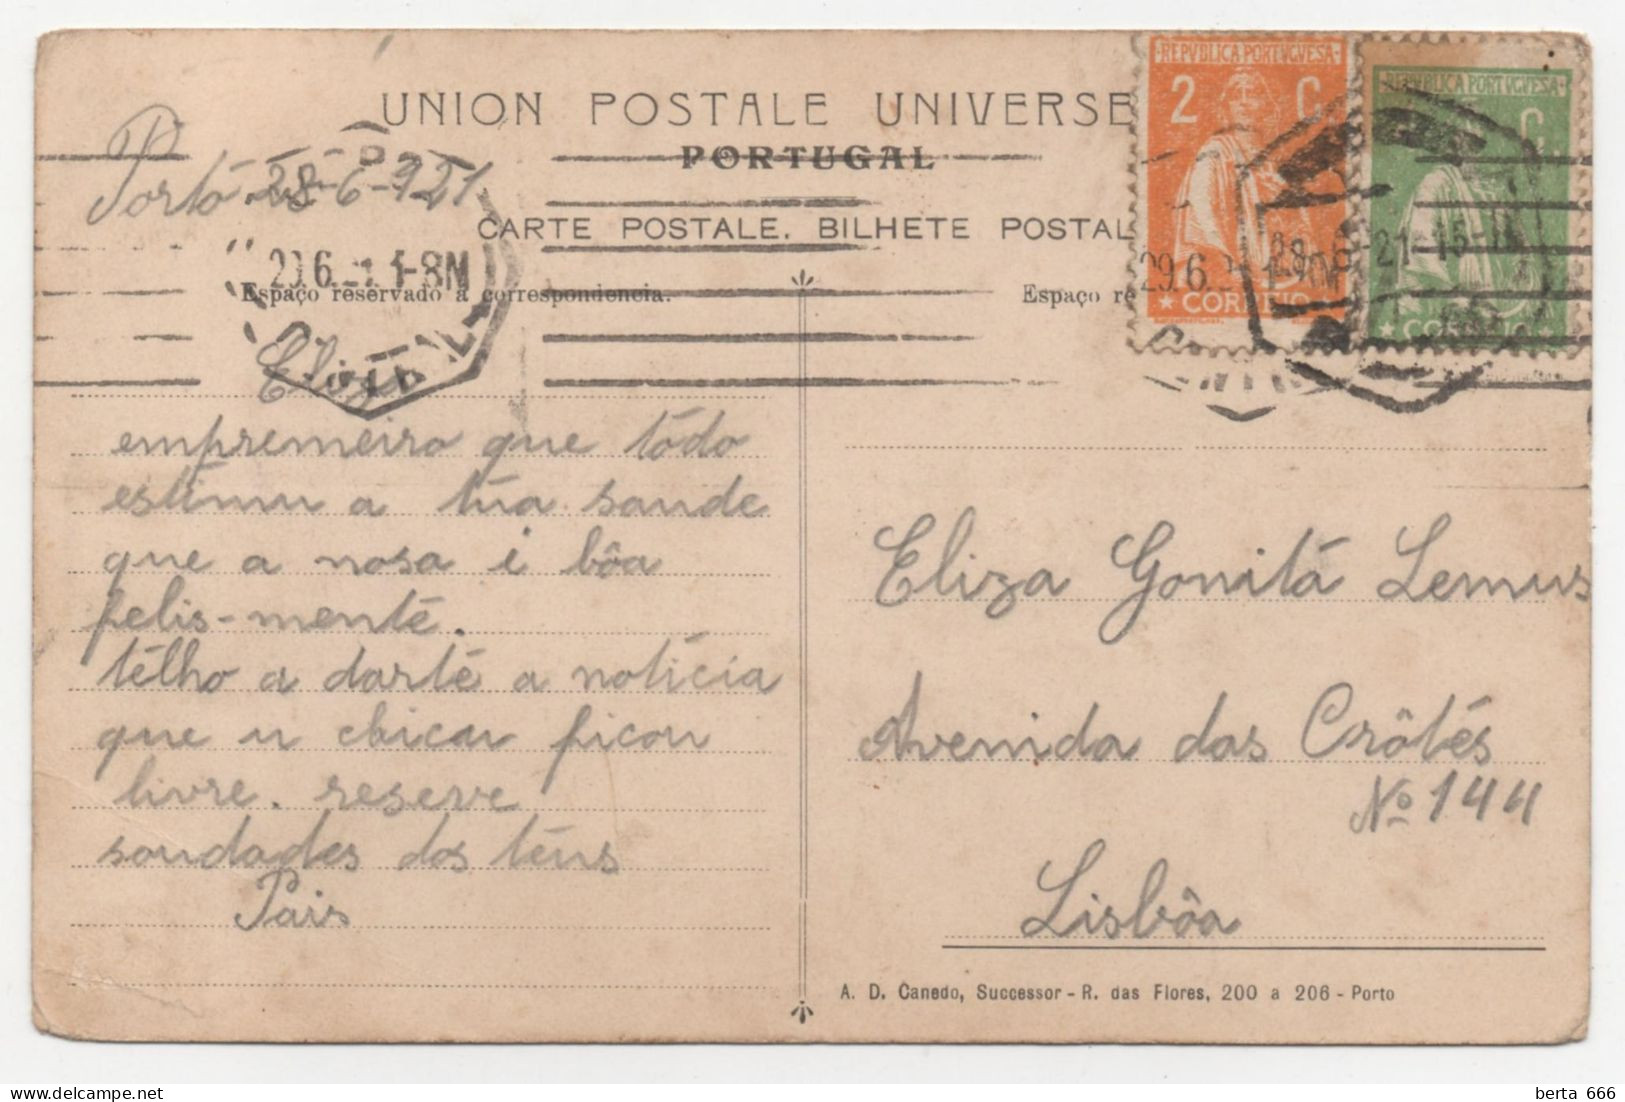 UNION POSTALE UNIVERSE
PORTUGAL
CARTE POSTALE. BILHETE POSTAL
Porto 28-6-921
Espaço reservado á correspondencia.
Espaço re
REPVBLICA PORTVGVESA
2 C.
CORREIO
REPVBLICA PORTVGVESA
C.
CORREIO
29.6.
21-15-
Eliza
empremeiro que tôdo
estimu a túa saude
que a nosa é bôa
felis-mente.
telho a darte a notícia
que u chicau ficou
livre. reserve
soudades dos teus
Pais
Eliza Gonitá Lemus
Avenida das Crôtés
Nº 144
Lisbôa
A. D. Canedo, Successor - R. das Flores, 200 a 206 - Porto
berta 666